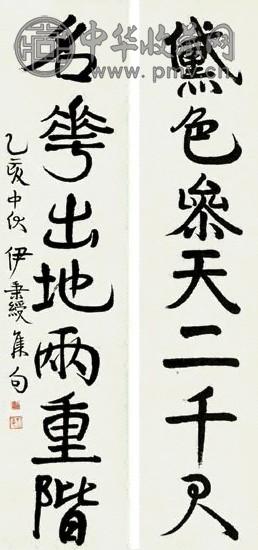 黛色参天二千尺
名花出地兩重階
乙亥中秋 伊秉綬集句
中华收藏网
www.pmyc.cn